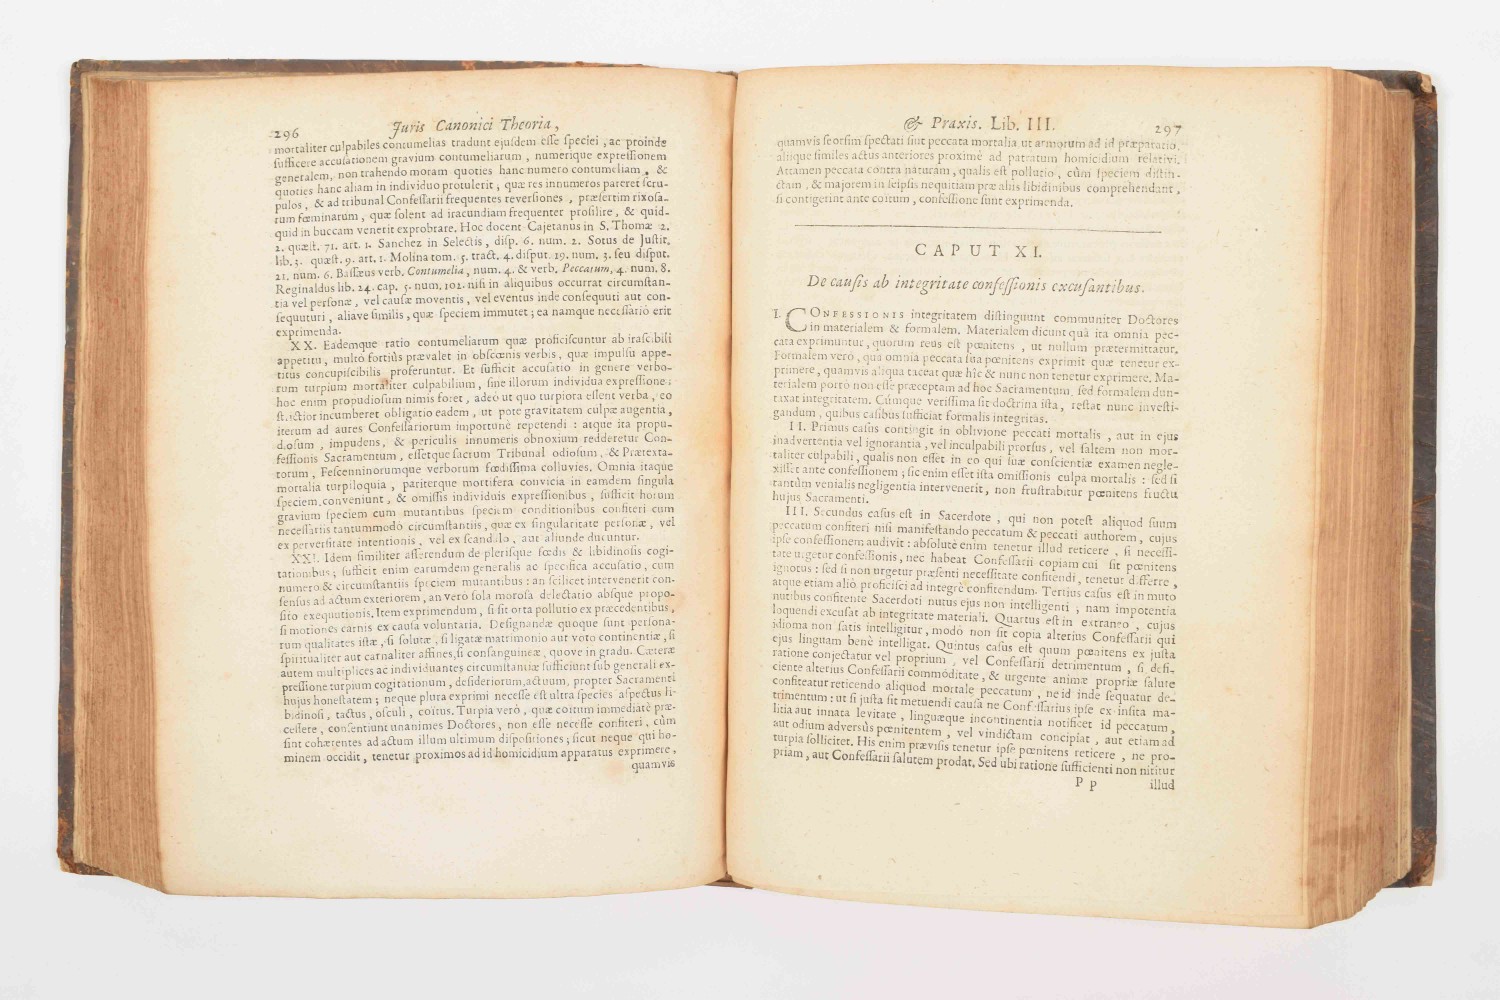 296
Juris Canonici Theoria,
mortaliter culpabiles contumelias tradunt ejusdem esse speciei, ac proinde
sufficere accusationem gravium contumeliarum, numerique expressionem
generalem, non trahendo moram quoties hanc numero contumeliam, &
quoties hanc aliam in individuo protulerit; quæ res innumeros pareret scru-
pulos, & ad tribunal Confessarii frequentes reversiones, præsertim rixosa-
rum fœminarum, quæ solent ad iracundiam frequenter prosilire, & quid-
quid in buccam venerit exprobrare. Hoc docent Cajetanus in S. Thomæ 2.
2. quæst. 71. art. 1. Sanchez in Selectis, disp. 6. num. 2. Sotus de Justit.
lib. 3. quæst. 9. art. 1. Molina tom. 5. tract. 4. disput. 19. num. 3. seu disput.
21. num. 6. Bassæus verb. Contumelia, num. 4. & verb. Peccatum, 4. num. 8.
Reginaldus lib. 24. cap. 5. num. 102. nisi in aliquibus occurrat circumstan-
tia vel personæ, vel causæ moventis, vel eventus inde consequuti aut con-
sequuturi, aliave similis, quæ speciem immutet; ea namque necessariò erit
exprimenda.
XX. Eademque ratio contumeliarum quæ proficiscuntur ab irascibili
appetitu, multò fortiùs prævalet in obscœnis verbis, quæ impulsu appe-
titus concupiscibilis proferuntur. Et sufficit accusatio in genere verbo-
rum turpium mortaliter culpabilium, sine illorum individua expressione:
hoc enim propudiosum nimis foret, adeò ut quo turpiora essent verba, eo
strictior incumberet obligatio eadem, ut pote gravitatem culpæ augentia,
iterum ad aures Confessariorum importunè repetendi: atque ita propu-
diosum, impudens, & periculis innumeris obnoxium redderetur Con-
fessionis Sacramentum, essetque sacrum Tribunal odiosum, & Prætexta-
torum, Fescenninorumque verborum fœdissima colluvies. Omnia itaque
mortalia turpiloquia, pariterque mortifera convicia in eamdem singula
speciem conveniunt, & omissis individuis expressionibus, sufficit horum
gravium speciem cum mutantibus speciem conditionibus confiteri cum
necessariis tantummodò circumstantiis, quæ ex singularitate personæ, vel
ex perversitate intentionis, vel ex scandalo, aut aliunde ducuntur.
XXI. Idem similiter asserendum de plerisque fœdis & libidinosis cogi-
tationibus; sufficit enim earumdem generalis ac specifica accusatio, cum
numero & circumstantiis speciem mutantibus: an scilicet intervenerit con-
sensus ad actum exteriorem, an verò sola morosa delectatio absque propo-
sito exequutionis. Item exprimendum, si sit orta pollutio ex præcedentibus,
si motiones carnis ex causa voluntaria. Designandæ quoque sunt persona-
rum qualitates istæ, si solutæ, si ligatæ matrimonio aut voto continentiæ, si
spiritualiter aut carnaliter affines, si consanguineæ, quove in gradu. Cæteræ
autem multiplices ac individuantes circumstantiæ sufficiunt sub generali ex-
pressione turpium cogitationum, desideriorum, actuum, propter Sacramenti
hujus honestatem; neque plura exprimi necesse est ultra species aspectus li-
bidinosi, tactus, osculi, coitus. Turpia verò, quæ coitum immediatè præ-
cessere, consentiunt unanimes Doctores, non esse necesse confiteri, cùm
sint cohærentes ad actum illum ultimum dispositiones; sicut neque qui ho-
minem occidit, tenetur proximos ad id homicidium apparatus exprimere,
quamvis
& Praxis. Lib. III.
297
quamvis seorsim spectati sint peccata mortalia, ut armorum ad id præparatio,
aliique similes actus anteriores proximè ad patratum homicidium relativi.
Attamen peccata contra naturam, qualis est pollutio, cùm speciem distin-
ctam, & majorem in seipsis nequitiam præ aliis libidinibus comprehendant,
si contigerint ante coitum, confessione sunt exprimenda.
CAPUT XI.
De causis ab integritate confessionis excusantibus.
I. CONFESSIONIS integritatem distinguunt communiter Doctores
in materialem & formalem. Materialem dicunt quâ ita omnia pec-
cata exprimuntur, quorum reus est pœnitens, ut nullum prætermittatur.
Formalem verò, qua omnia peccata sua pœnitens exprimit quæ tenetur ex-
primere, quamvis aliqua taceat quæ hîc & nunc non tenetur exprimere. Ma-
terialem porrò non esse præceptam ad hoc Sacramentum, sed formalem dun-
taxat integritatem. Cùmque verissima sit doctrina ista, restat nunc investi-
gandum, quibus casibus sufficiat formalis integritas.
II. Primus casus contingit in oblivione peccati mortalis, aut in ejus
inadvertentia vel ignorantia, vel inculpabili prorsus, vel saltem non mor-
taliter culpabili, qualis non esset in eo qui suæ conscientiæ examen negle-
xisset ante confessionem; sic enim esset ista omissionis culpa mortalis: sed si
tantùm venialis negligentia intervenerit, non frustrabitur pœnitens fructu
hujus Sacramenti.
III. Secundus casus est in Sacerdote, qui non potest aliquod suum
peccatum confiteri nisi manifestando peccatum & peccati authorem, cujus
ipse confessionem audivit: absolutè enim tenetur illud reticere, si necessi-
tate urgetur confessionis, nec habeat Confessarii copiam cui sit pœnitens
ignotus: sed si non urgetur præsenti necessitate confitendi, tenetur differre,
atque etiam aliò proficisci ad integrè confitendum. Tertius casus est in muto
nutibus confitente Sacerdoti nutus ejus non intelligenti, nam impotentia
loquendi excusat ab integritate materiali. Quartus est in extraneo, cujus
idioma non satis intelligitur, modò non sit copia alterius Confessarii qui
ejus linguam benè intelligat. Quintus casus est quum pœnitens ex justa
ratione conjectatur vel proprium, vel Confessarii detrimentum, si defi-
ciente alterius Confessarii commoditate, & urgente animæ propriæ salute
confiteatur reticendo aliquod mortale peccatum, ne id inde sequatur de-
trimentum: ut si justa sit metuendi causa ne Confessarius ipse ex insita ma-
litia aut innata levitate, linguæque incontinentia notificet id peccatum,
aut odium adversùs pœnitentem, vel vindictam concipiat, aut etiam ad
turpia sollicitet. His enim prævisis tenetur ipse pœnitens reticere, ne pro-
priam, aut Confessarii salutem prodat. Sed ubi ratione sufficienti non nititur
P p
illud